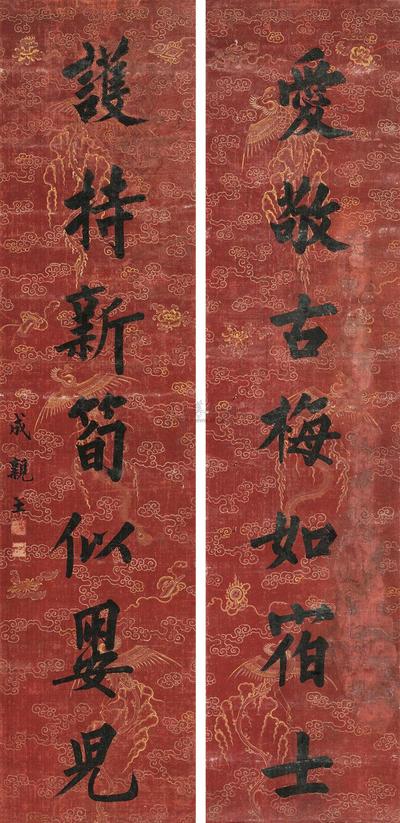 愛敬古梅如宿士
護持新筍似嬰兒
成親王